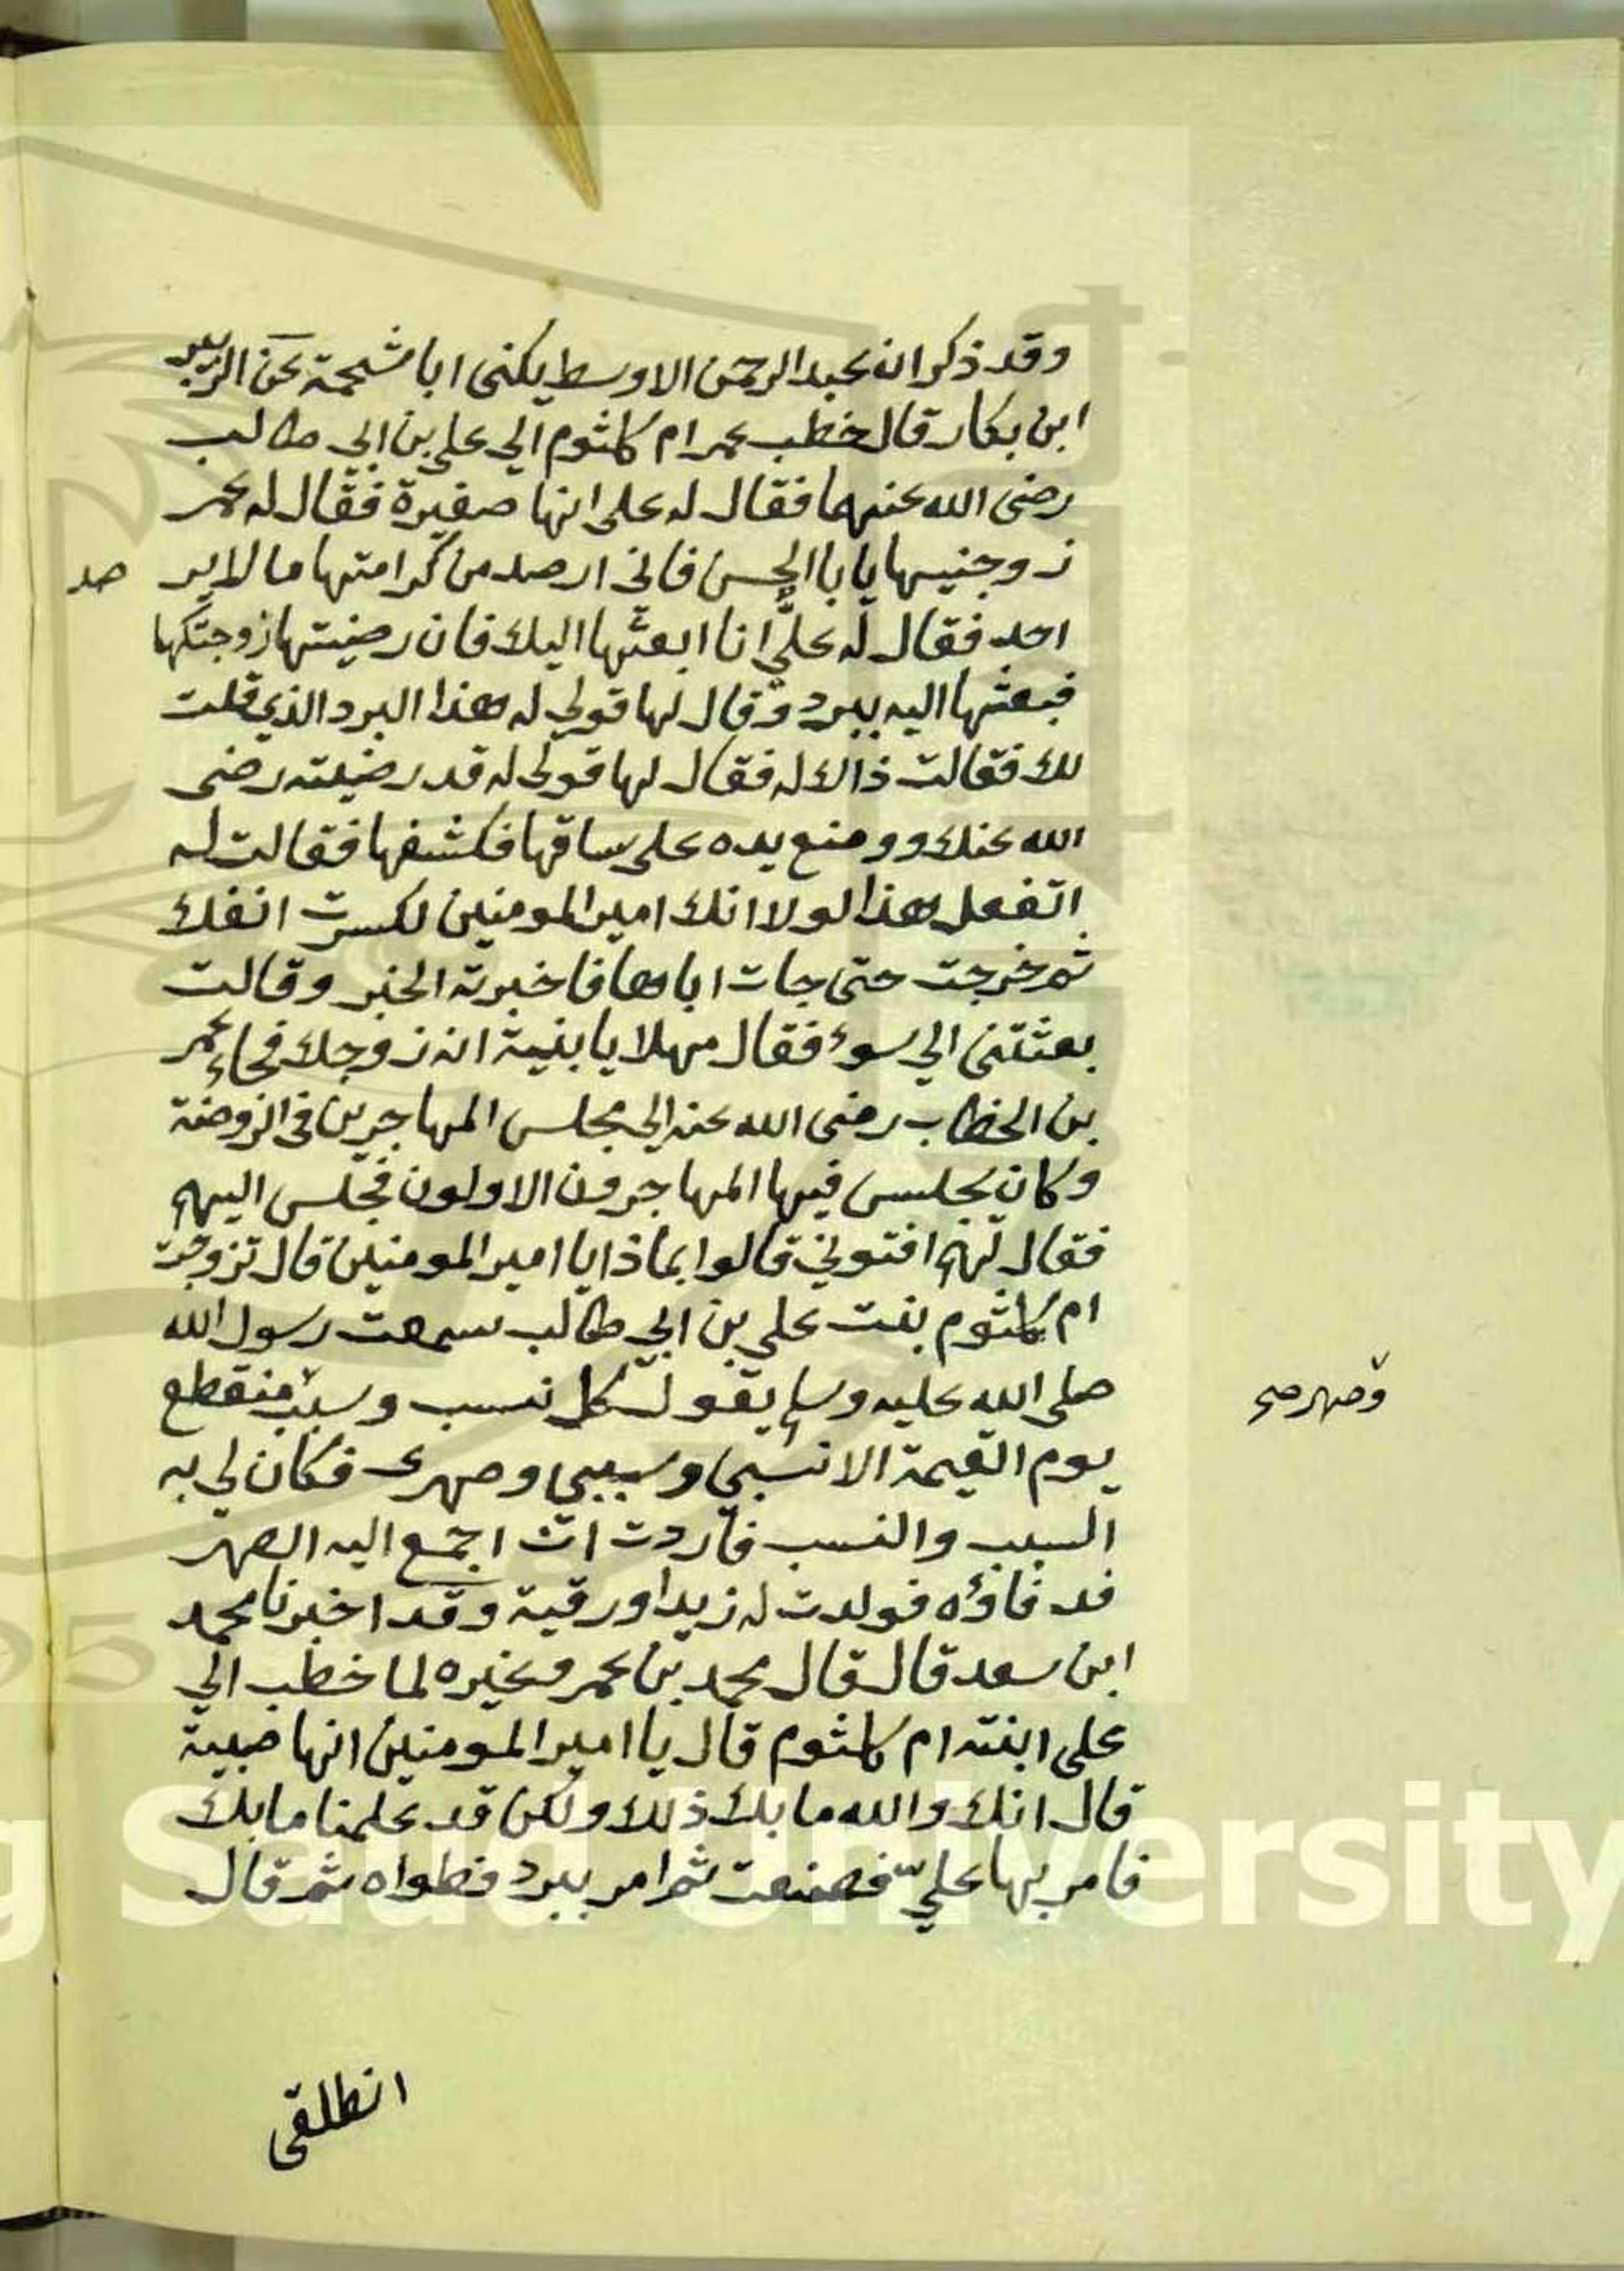 وقد ذكر ان عبد الرحمن الاوسط يكنى ابا شحمة عن الزبير
ابن بكار قال خطب عمر ام كلثوم الي علي بن ابي طالب
رضى الله عنهما فقال له على انها صغيرة فقال له عمر
زوجنيها يابا الحسن فاني ارصد من كرامتها ما لاير صد
احد فقال له عليّ انا ابعثها اليك فان رضيتها زوجتكها
فبعثها اليه ببرد وقال لها قولي له هذا البرد الذي قلت
لك فقالت ذالك له فقال لها قولي له قد رضيته رضى
الله عنك ووضع يده على ساقها فكشفها فقالت له
اتفعل هذا لولا انك امير المومنين لكسرت انفك
ثم خرجت حتى جات اباها فاخبرته الخبر وقالت
بعثتنى الي سوء فقال مهلا يا بنية انه زوجك فجاء عمر
بن الخطاب رضى الله عنه الي مجلس المهاجرين في الروضة
وكان يجلس فيها المهاجرون الاولون فجلس اليهم
فقال لهم افتوني قالوا بماذا يا امير المومنين قال تزوجت
ام كلثوم بنت علي بن ابي طالب سمعت رسول الله
صلى الله عليه وسلم يقول كل نسب وسبب منقطع
وصهر صح
يوم القيمة الا نسبي وسببي وصهرى فكان لي به
السبب والنسب فاردت ان اجمع اليه الصهر
فد فاؤه فولدت له زيدا ورقية وقد اخبرنا محمد
ابن سعد قال قال محمد بن عمر وغيره لما خطب الي
على ابنته ام كلثوم قال يا امير المومنين انها صبية
قال انك والله ما بك ذلك ولكن قد علمنا ما بك
فامر بها عليّ فصنعت ثم امر ببرد فطواه ثم قال
انطلقى
King Saud University